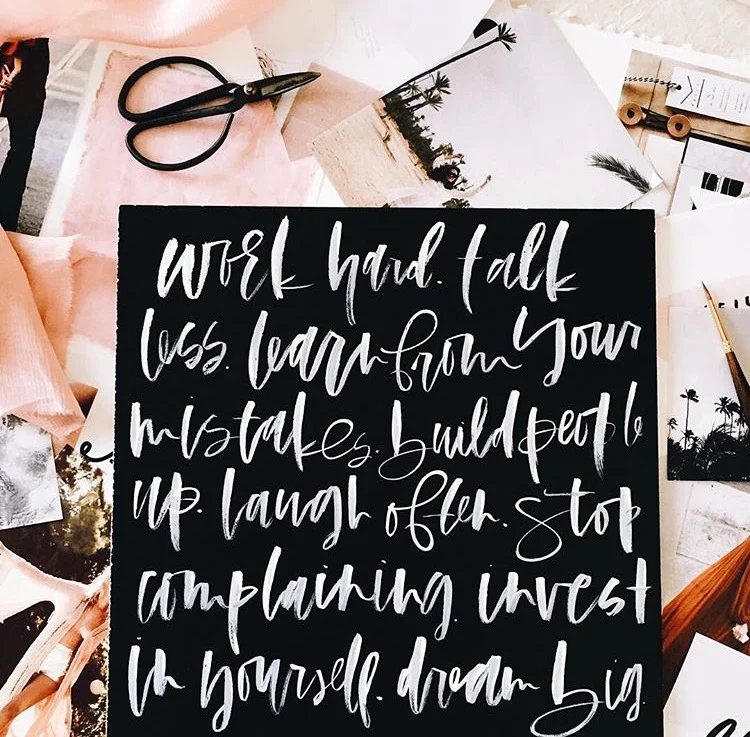 work hard. talk
less. learn from your
mistakes. build people
up. laugh often. stop
complaining. invest
in yourself. dream big.